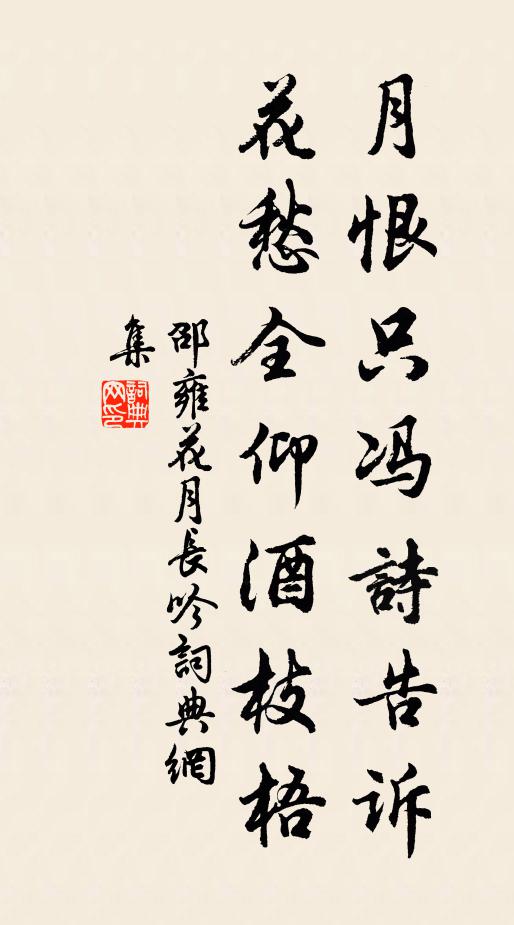 月恨只冯詩告诉
花愁全仰酒枝梧
邵雍花月長吟詞典網
集
詞典
网印